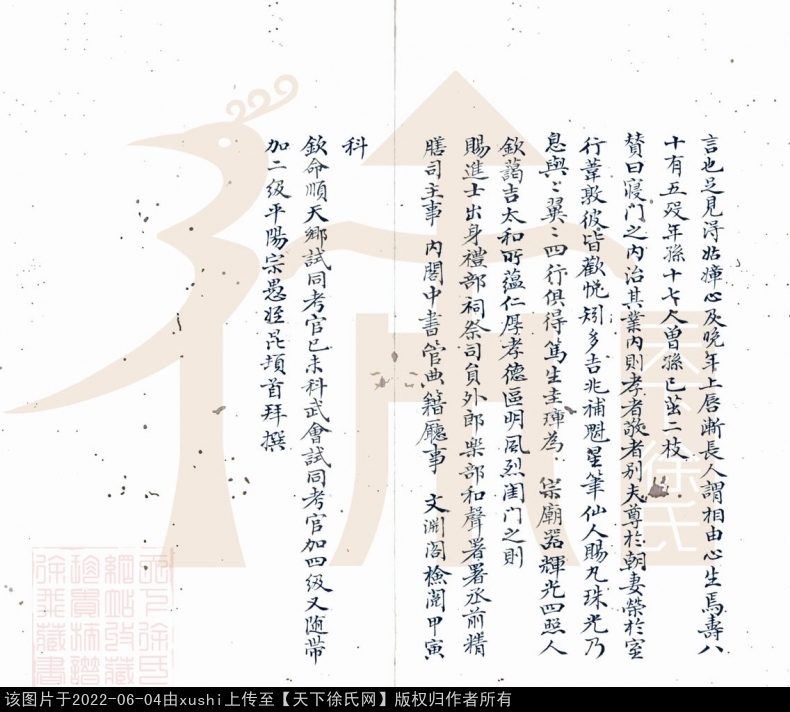 言也足見淂姑嫜心及晚年上唇漸長人謂相由心生焉壽八
十有五歿年孫十七人曾孫已茁二枝
賛曰寢门之內治其業內則孝者敬者别夫尊扵朝妻榮扵室
行葦敦彼皆歡悅矧多吉兆補魁星筆仙人賜九珠光乃
息與〻翼〻四行俱得篤生圭璋為 宗廟器輝光四照人
欽藹吉太和所蘊仁厚孝德區明風烈閨门之則
賜進士出身禮部祠祭司員外郎樂部和聲署署丞前精
膳司主事 內閣中書管典籍廳事 文淵阁檢閱甲寅
科
欽命順天鄉試同考官已未科武會試同考官加四級又随帶
加二級平陽宗愚姪昆頓首拜撰
天下徐氏
天下徐氏
網站收藏
珍貴族譜
徐飛藏書
该图片于2022-06-04由xushi上传至【天下徐氏网】版权归作者所有